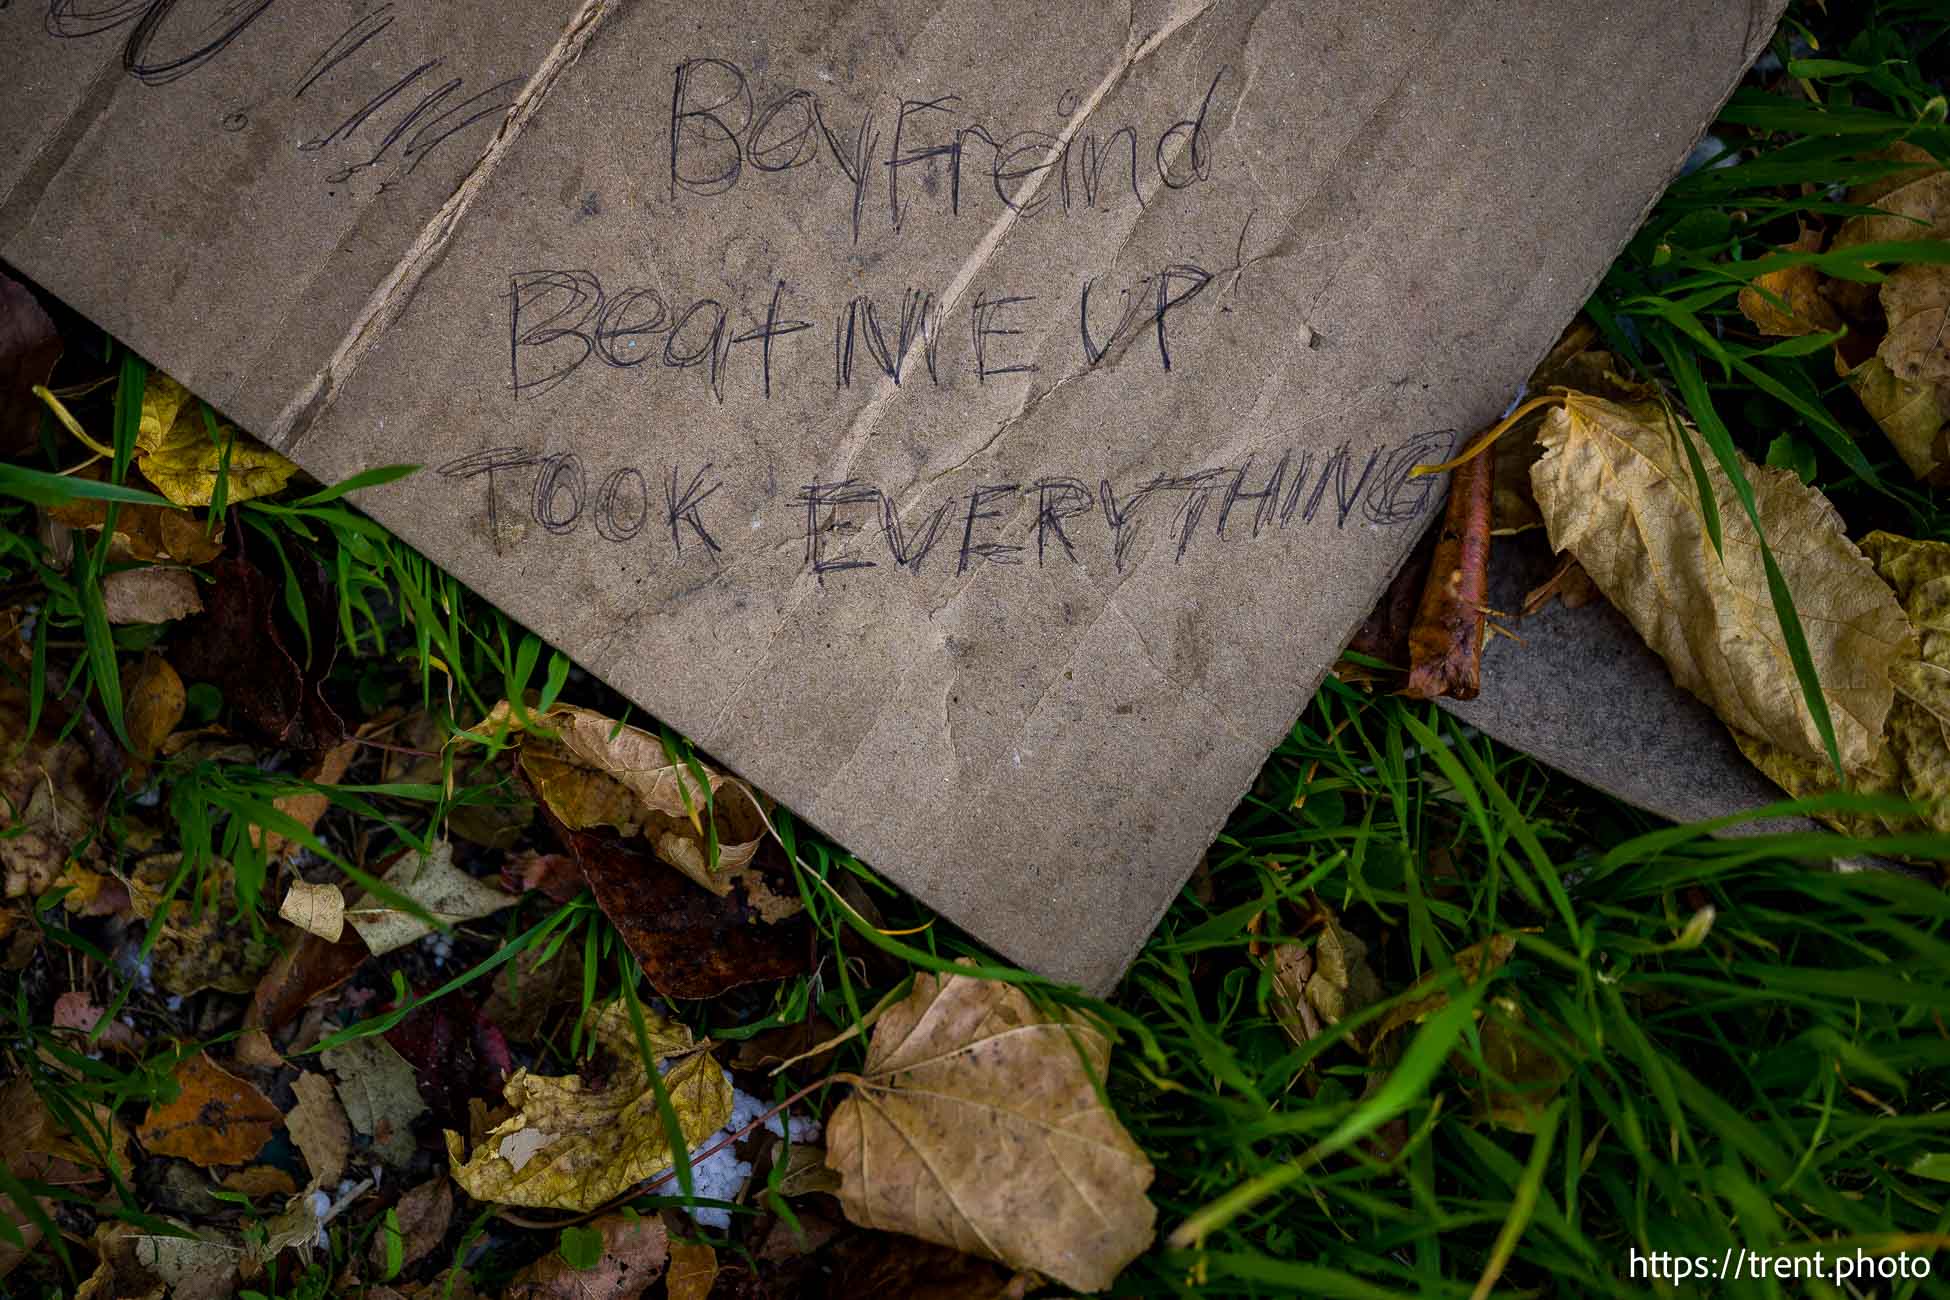 BoyFreind
Beat ME UP
TOOK EVERYTHING
https://trent.photo